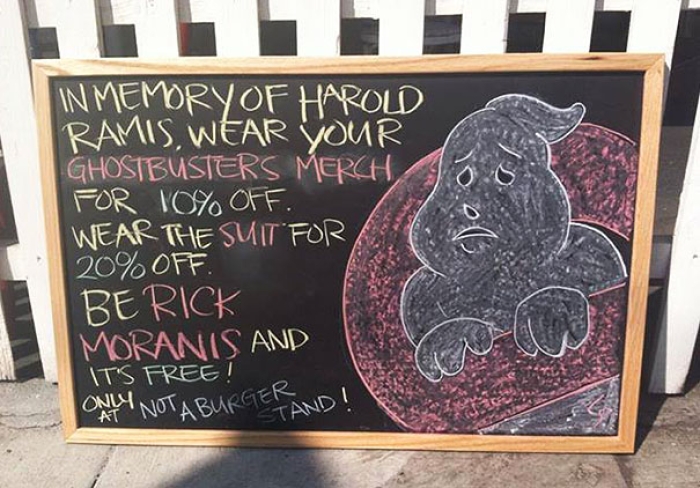 IN MEMORY OF HAROLD
RAMIS, WEAR YOUR
GHOSTBUSTERS MERCH
FOR 10% OFF.
WEAR THE SUIT FOR
20% OFF.
BE RICK
MORANIS AND
IT'S FREE!
ONLY AT NOT A BURGER STAND!